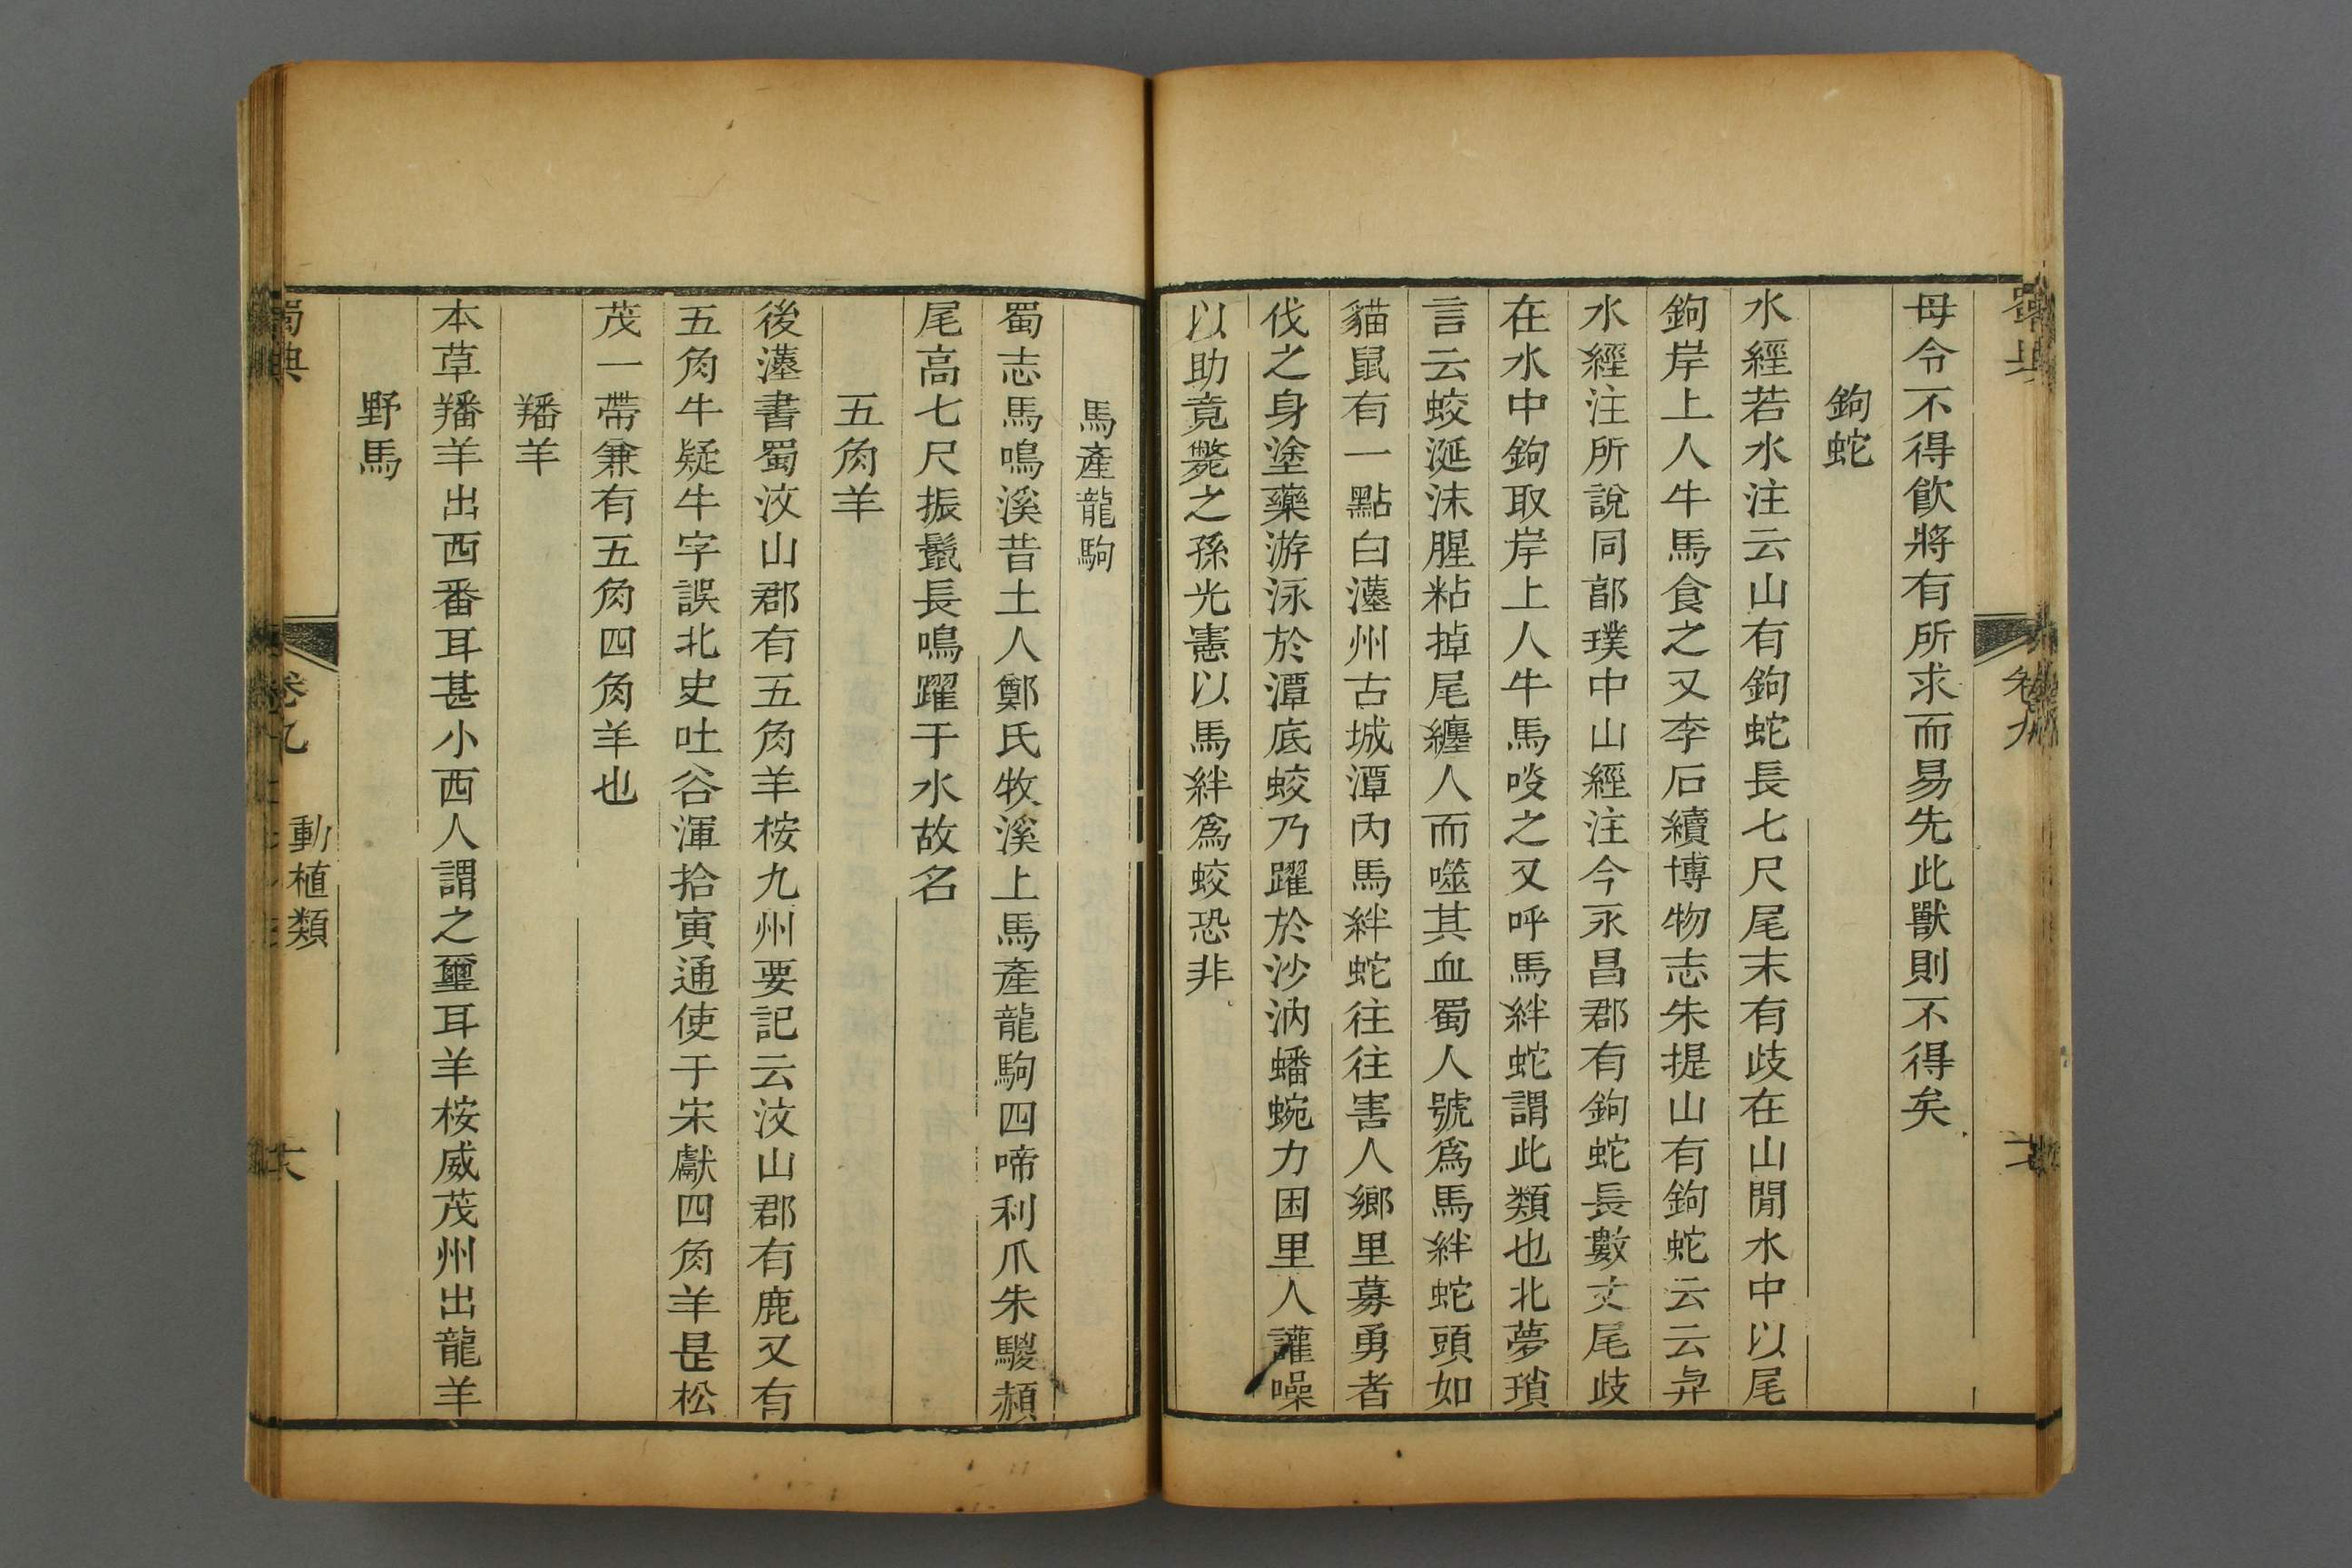 母令不得飮將有所求而易先此獸則不得矣
鉤蛇
水經若水注云山有鉤蛇長七尺尾末有歧在山閒水中以尾
鉤岸上人牛馬食之又李石續博物志朱提山有鉤蛇云云弁
水經注所說同郭璞中山經注今永昌郡有鉤蛇長數丈尾歧
在水中鉤取岸上人牛馬啖之又呼馬絆蛇謂此類也北夢瑣
言云蛟涎沫腥粘掉尾纏人而噬其血蜀人號爲馬絆蛇頭如
貓鼠有一點白漢州古城潭內馬絆蛇往往害人鄉里募勇者
伐之身塗藥游泳於潭底蛟乃躍於沙汭蟠蜿力困里人讙噪
以助竟斃之孫光憲以馬絆爲蛟恐非
馬產龍駒
蜀志馬鳴溪昔土人鄭氏牧溪上馬產龍駒四啼利爪朱騣頳
尾高七尺振鬣長鳴躍于水故名
五角羊
後漢書蜀汶山郡有五角羊桉九州要記云汶山郡有鹿又有
五角牛疑牛字誤北史吐谷渾拾寅通使于宋獻四角羊是松
茂一帶兼有五角四角羊也
羳羊
本草羳羊出西番耳甚小西人謂之璽耳羊桉威茂州出龍羊
野馬
蜀典
卷九
動植類